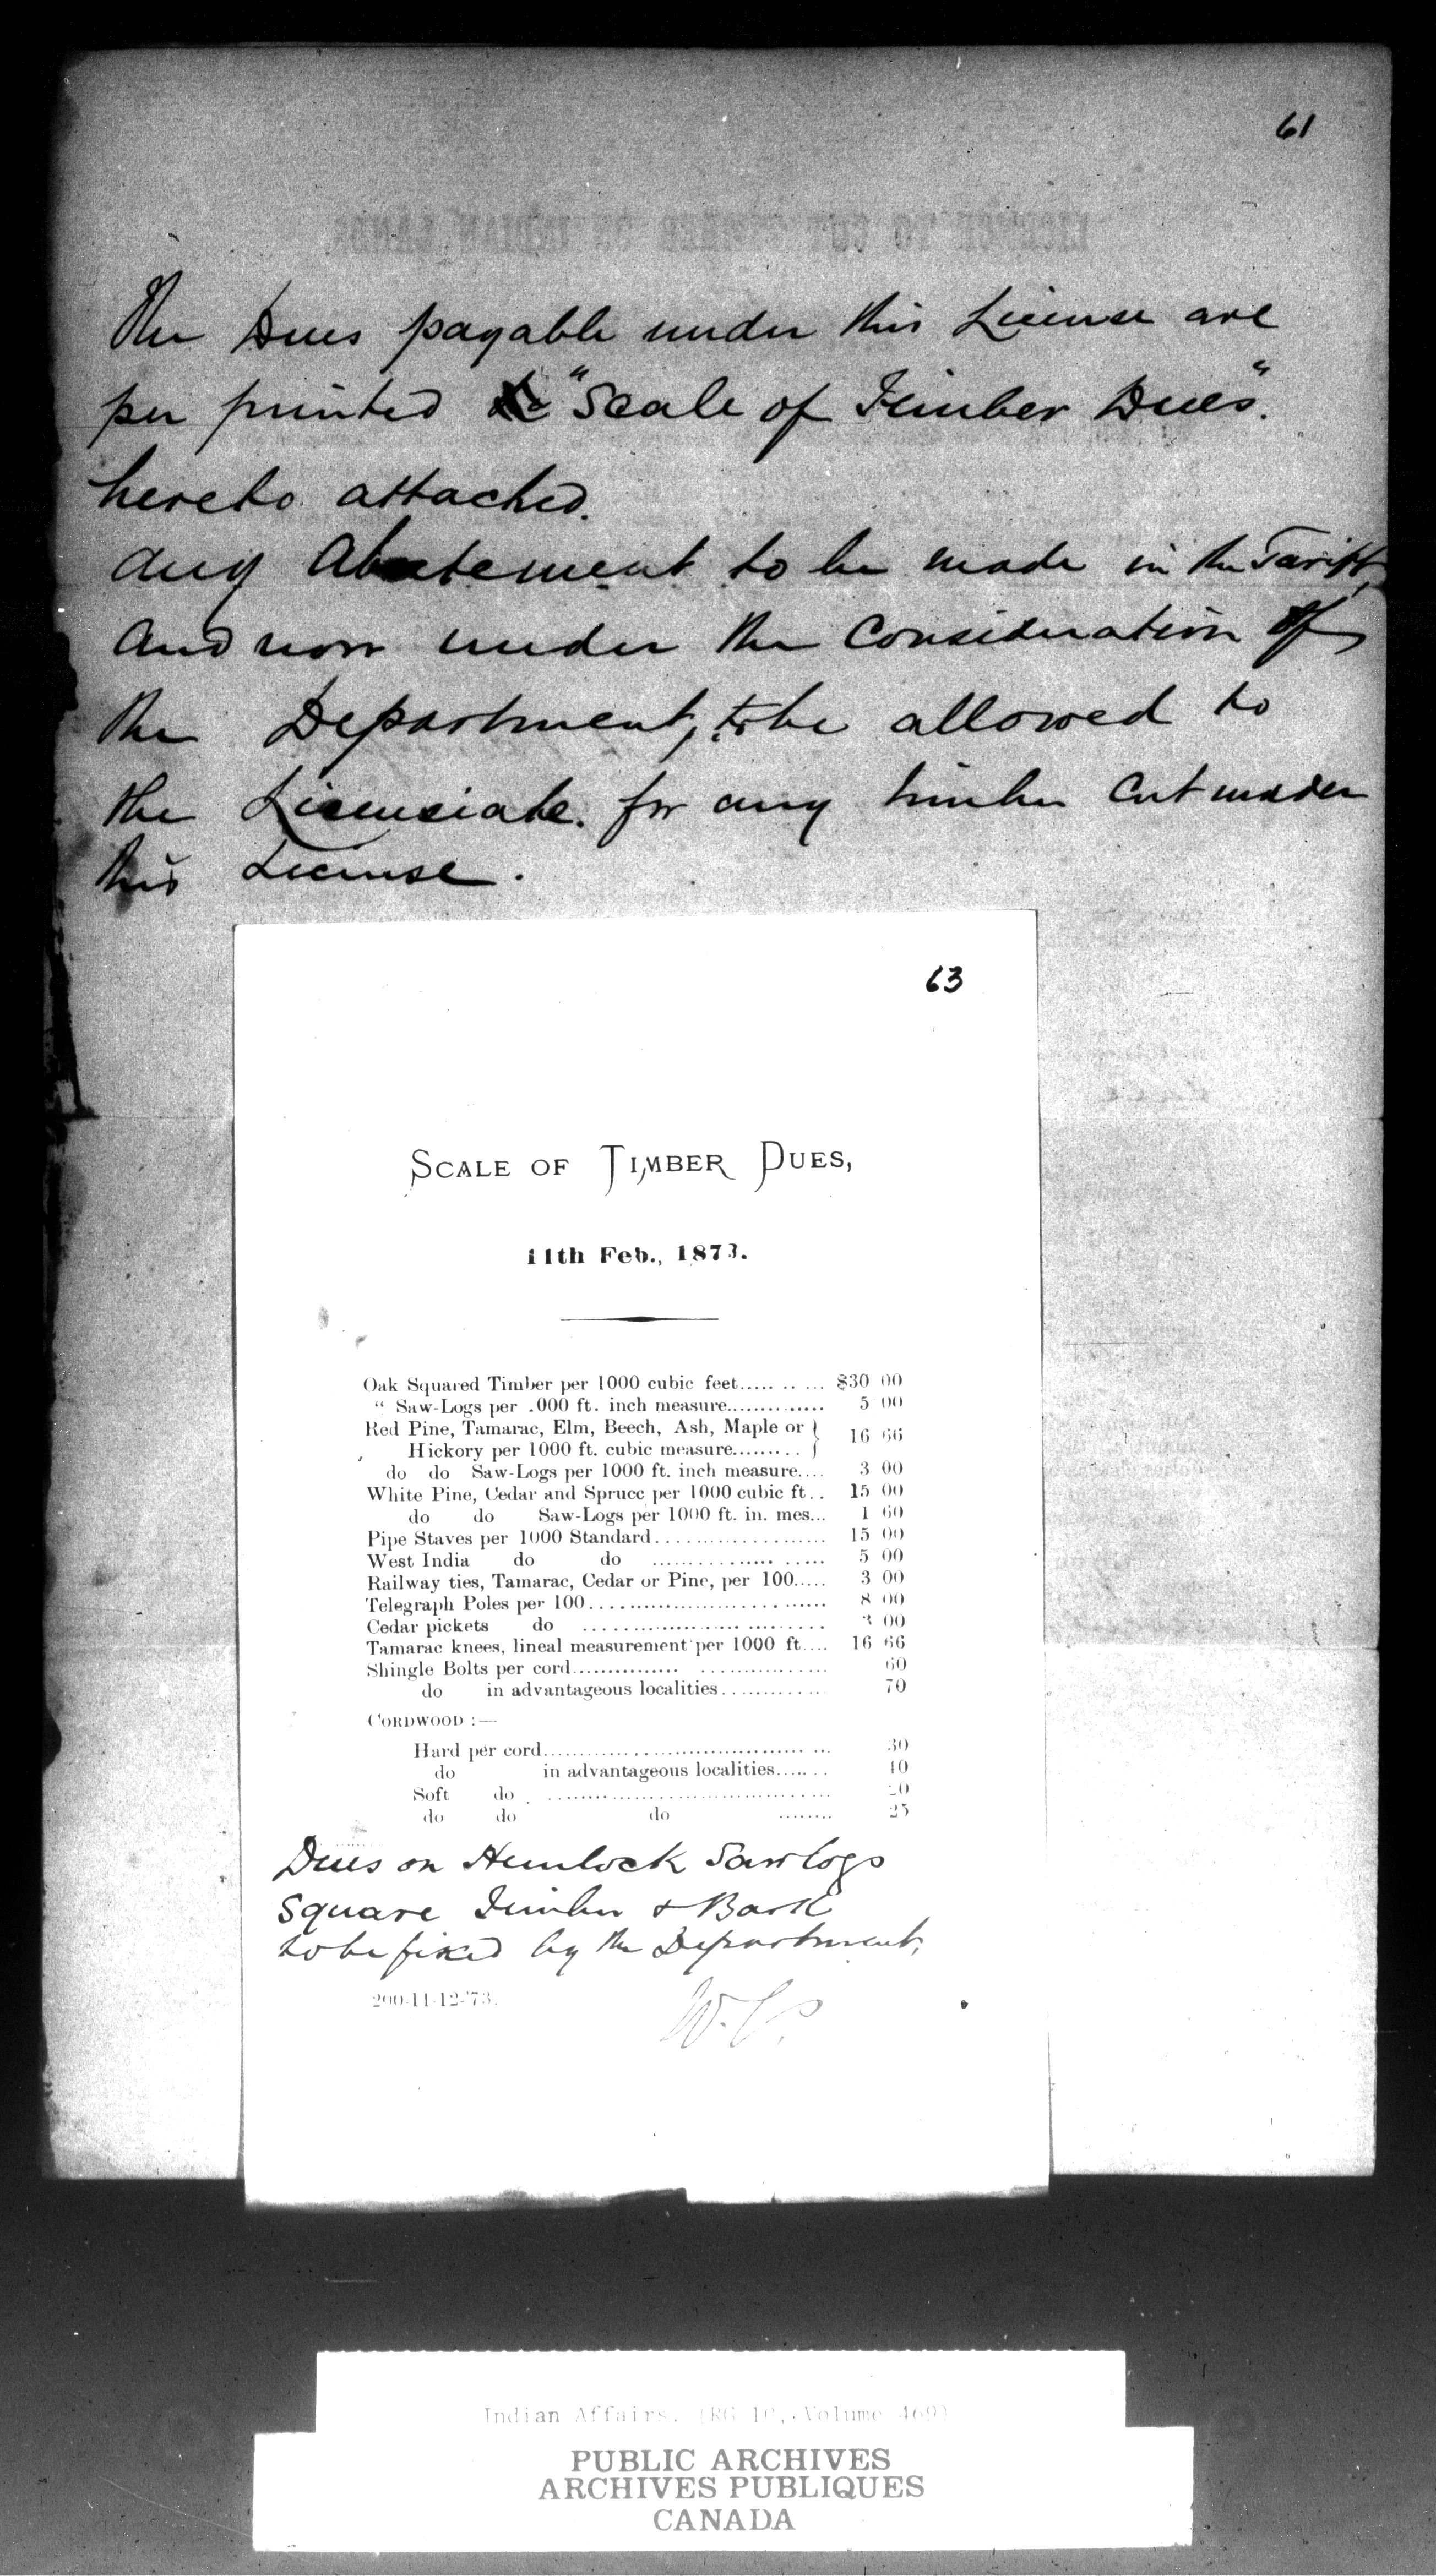 61
LICENCE TO CUT TIMBER ON INDIAN LANDS
The Dues payable under this License are
per printed "Scale of Timber Dues".
hereto attached.
Any Abatement to be made in the Tariff,
and now under the Consideration of
the Department, to be allowed to
the Licenciate. for any timber cut under
this License.
63
SCALE OF TIMBER DUES,
11th Feb., 1873.
Oak Squared Timber per 1000 cubic feet............ $30 00
" Saw-Logs per .000 ft. inch measure.............. 5 00
Red Pine, Tamarac, Elm, Beech, Ash, Maple or }
Hickory per 1000 ft. cubic measure......... } 16 66
do do Saw-Logs per 1000 ft. inch measure.... 3 00
White Pine, Cedar and Spruce per 1000 cubic ft.. 15 00
do do Saw-Logs per 1000 ft. in. mes... 1 60
Pipe Staves per 1000 Standard.................... 15 00
West India do do .................... 5 00
Railway ties, Tamarac, Cedar or Pine, per 100..... 3 00
Telegraph Poles per 100............................ 8 00
Cedar pickets do ............................ 3 00
Tamarac knees, lineal measurement per 1000 ft.... 16 66
Shingle Bolts per cord............................ 60
do in advantageous localities............. 70
CORDWOOD :—
Hard per cord.................................... 30
do in advantageous localities........ 40
Soft do .................................... 20
do do do ........ 25
Dues on Hemlock Sawlogs
Square Timber & Bark
to be fixed by the Department.
200-11-12-'73.
W.P.
Indian Affairs. (RG 10, Volume 469)
PUBLIC ARCHIVES
ARCHIVES PUBLIQUES
CANADA